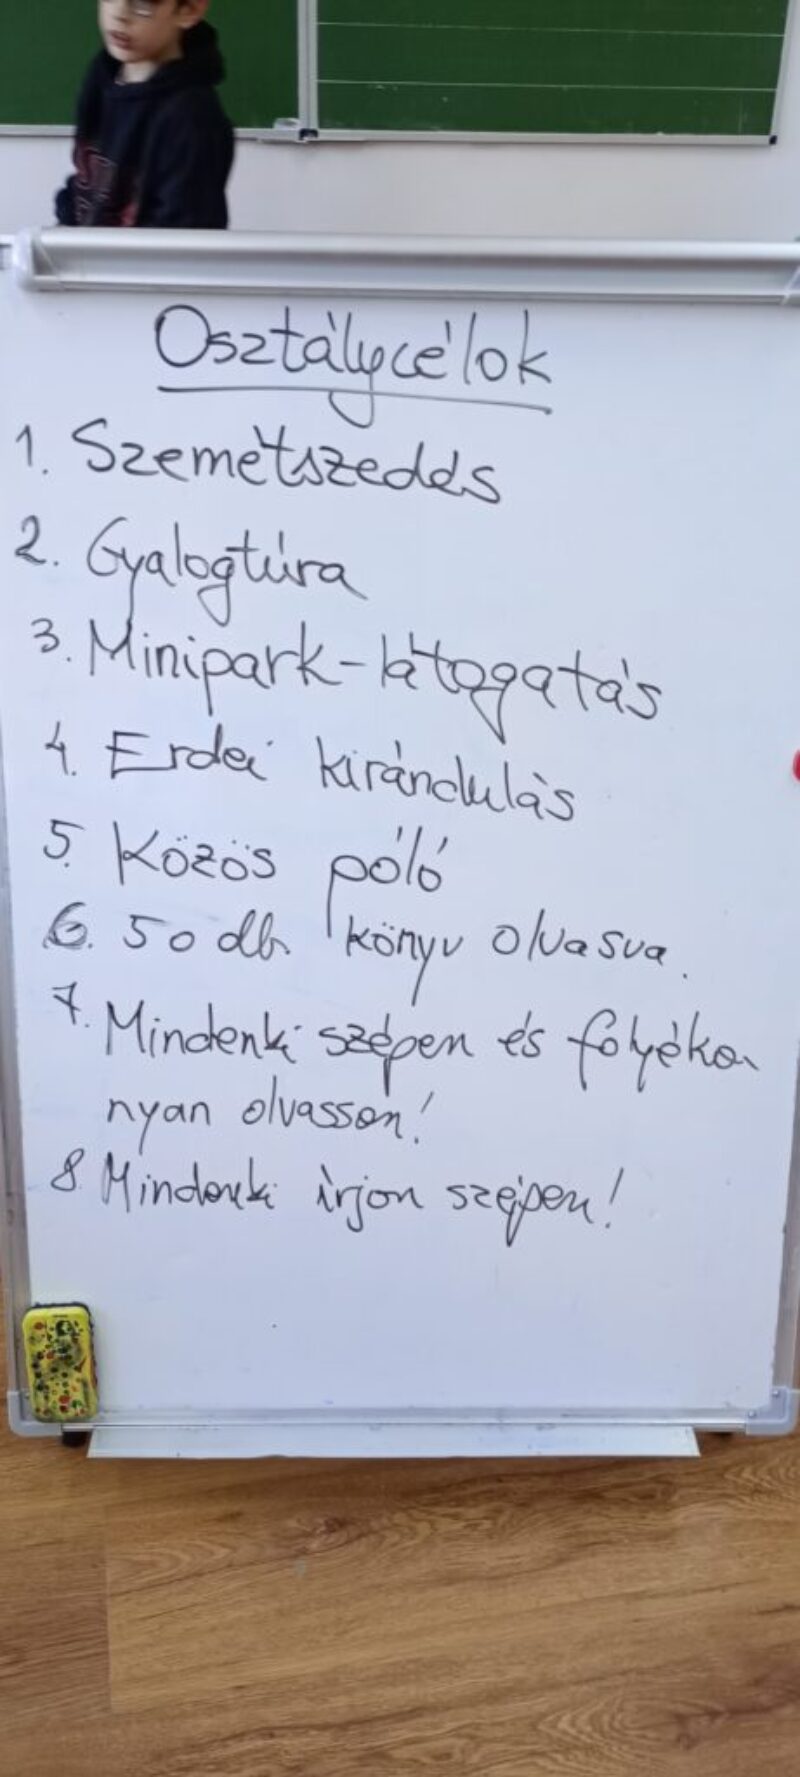 Osztálycélok
1. Szemétszedés
2. Gyalogtúra
3. Minipark-látogatás
4. Erdei kirándulás
5. Közös póló
6. 50 db. könyv olvasva.
7. Mindenki szépen és folyéko-
nyan olvasson!
8. Mindenki írjon szépen!